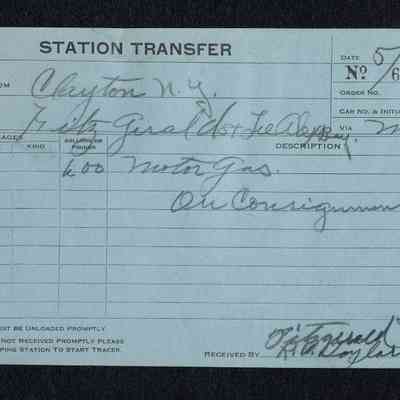 STATION TRANSFER
DATE 5/
Nº 6
OM Clayton N.Y.
ORDER NO.
CAR NO. & INITIA
Fitz Gerald & Lee Alex Bay,
VIA M
AGES
KIND
GALLONS OR POUNDS
DESCRIPTION
600 Motor Gas.
On Consignmen
ST BE UNLOADED PROMPTLY.
NOT RECEIVED PROMPTLY PLEASE
PING STATION TO START TRACER.
RECEIVED BY Fitzgerald